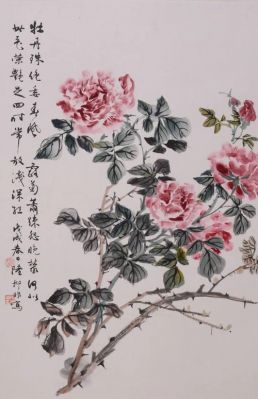 牡丹殊絕委春風露菊蕭疎怨晚叢何似
此花榮艷足四時常放淺深紅戊戌春日陸抑非寫